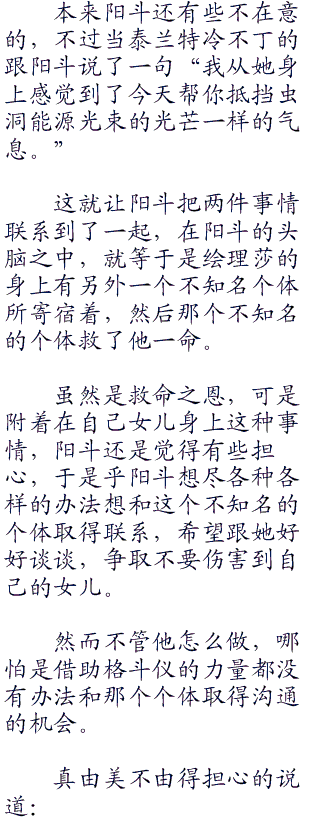 本来阳斗还有些不在意
的，不过当泰兰特冷不丁的
跟阳斗说了一句“我从她身
上感觉到了今天帮你抵挡虫
洞能源光束的光芒一样的气
息。”
这就让阳斗把两件事情
联系到了一起，在阳斗的头
脑之中，就等于是绘理莎的
身上有另外一个不知名个体
所寄宿着，然后那个不知名
的个体救了他一命。
虽然是救命之恩，可是
附着在自己女儿身上这种事
情，阳斗还是觉得有些担
心，于是乎阳斗想尽各种各
样的办法想和这个不知名的
个体取得联系，希望跟她好
好谈谈，争取不要伤害到自
己的女儿。
然而不管他怎么做，哪
怕是借助格斗仪的力量都没
有办法和那个个体取得沟通
的机会。
真由美不由得担心的说
道：